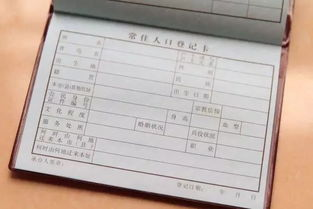 常住人口登记卡
姓名
曾用名
性别
出生地
民族
籍贯
出生日期
本市(县)其他住址
宗教信仰
公民身份证件编号
身高
血型
文化程度
婚姻状况
兵役状况
服务处所
职业
何时由何地迁来本市(县)
何时由何地迁来本址
承办人签章:
登记日期: 年 月 日